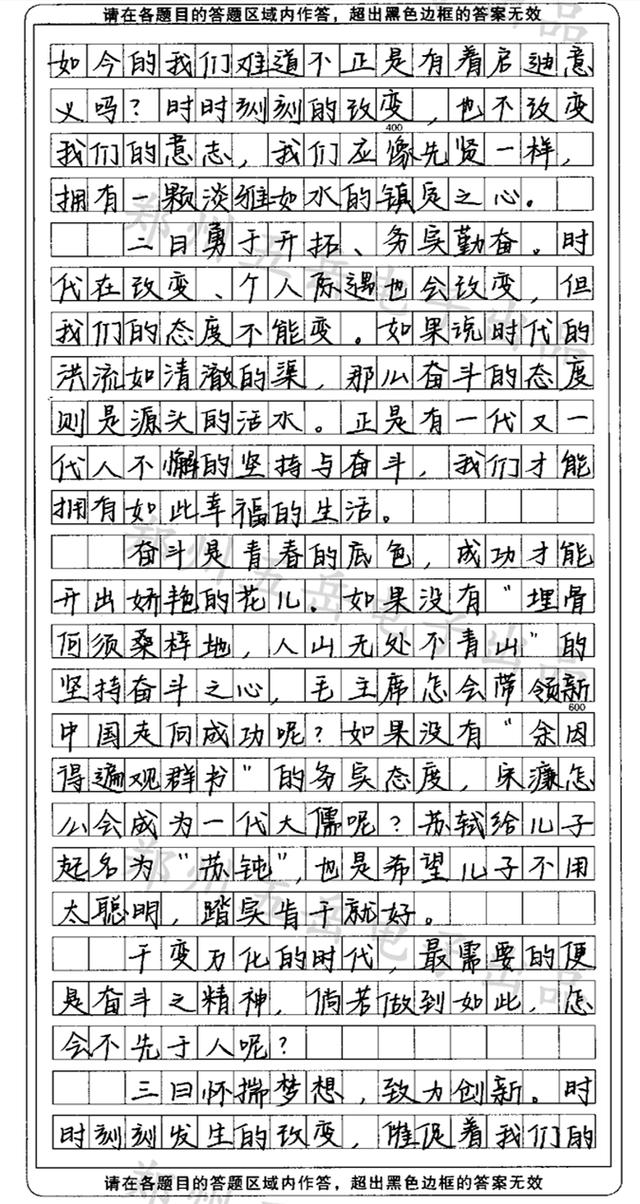 请在各题目的答题区域内作答，超出黑色边框的答案无效
如今的我们难道不正是有着启迪意
义吗？时时刻刻的改变，也不改变
400
我们的意志，我们应像先贤一样，
拥有一颗淡雅如水的镇定之心。
二曰勇于开拓、务实勤奋。时
代在改变、个人际遇也会改变，但
我们的态度不能变。如果说时代的
洪流如清澈的渠，那么奋斗的态度
则是源头的活水。正是有一代又一
代人不懈的坚持与奋斗，我们才能
拥有如此幸福的生活。
奋斗是青春的底色，成功才能
开出娇艳的花儿。如果没有“埋骨
何须桑梓地，人山无处不青山”的
坚持奋斗之心，毛主席怎会带领新
600
中国走向成功呢？如果没有“余因
得遍观群书”的务实态度，宋濂怎
么会成为一代大儒呢？苏轼给儿子
起名为“苏钝”，也是希望儿子不用
太聪明，踏实肯干就好。
千变万化的时代，最需要的便
是奋斗之精神，倘若做到如此，怎
会不先于人呢？
三曰怀揣梦想，致力创新。时
时刻刻发生的改变，催促着我们的
请在各题目的答题区域内作答，超出黑色边框的答案无效
郑州五岳电子出品
郑州五岳电子出品
郑州五岳电子出品